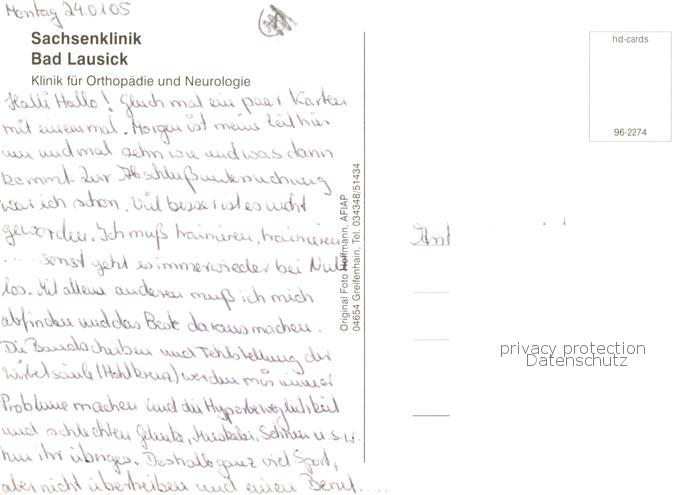 Montag 24.01.05
Sachsenklinik
Bad Lausick
Klinik für Orthopädie und Neurologie
Halli Hallo! Gleich mal ein paar Karten
mit einem mal. Morgen ist meine Zeit hier
um und mal sehn wie und was dann
kommt. Zur Abschlußuntersuchung
war ich schon. Viel besser ist es nicht
geworden. Ich muß trainieren, trainieren
... sonst geht es immer wieder bei Null
los. Mit allem anderen muß ich mich
abfinden und das Beste daraus machen.
Die Bandscheiben und Fehlstellung der
Wirbelsäule (Hohlkreuz) werden mir immer
Probleme machen und die Hyperbeweglichkeit
und schlechten Gelenke, Muskeln, Sehnen u.s.w.
tun ihr übriges. Deshalb ganz viel Sport,
aber nicht übertreiben und einen Beruf.....
Original Foto Hoffmann, AFIAP
04654 Greifenhain, Tel. 034348/51434
hd-cards
96-2274
privacy protection
Datenschutz